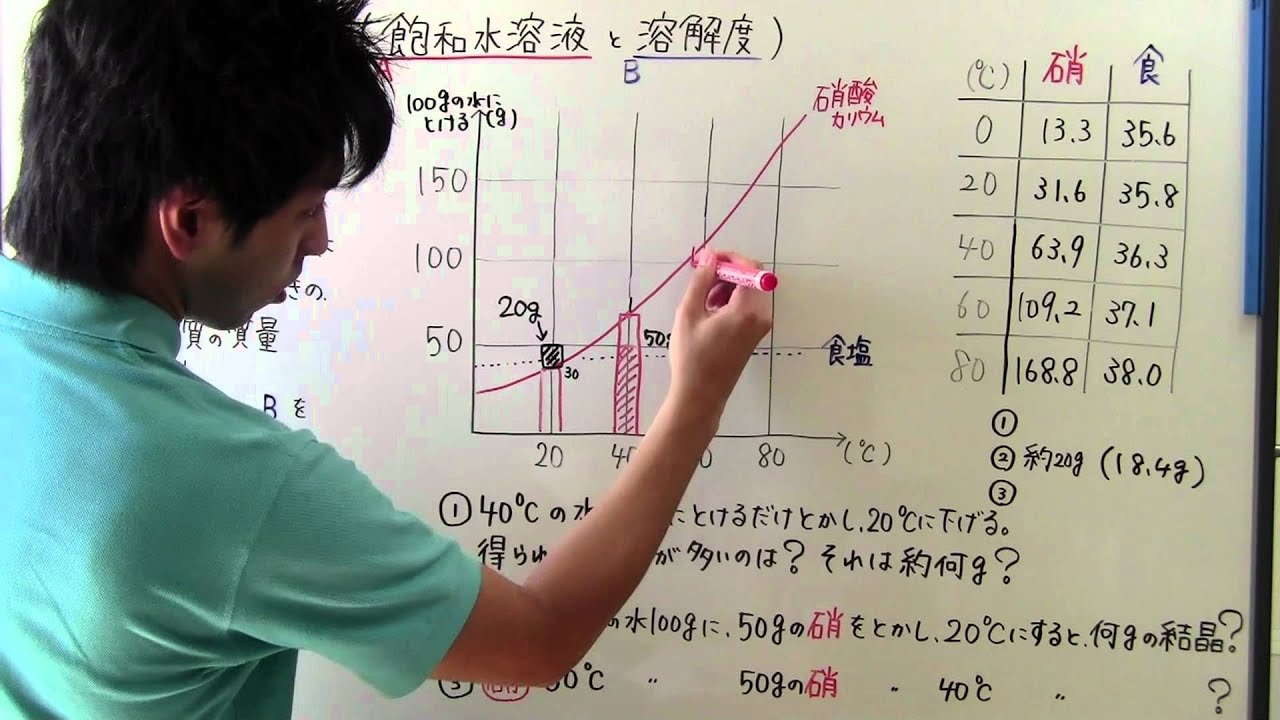 飽和水溶液と溶解度）
A
B
100gの水に
とける(g)
150
100
50
20g
50g
30
20
80
(℃)
硝酸
カリウム
食塩
(℃) 硝 食
0 13.3 35.6
20 31.6 35.8
40 63.9 36.3
60 109.2 37.1
80 168.8 38.0
①
② 約20g (18.4g)
③
きの、
質の質量
Bを
① 40℃の水
にとけるだけとかし、20℃に下げる。
得られ
が多いのは？それは約何g？
の水100gに、50gの硝をとかし、20℃にすると、何gの結晶？
③
50gの硝 〃 40℃ 〃 ？